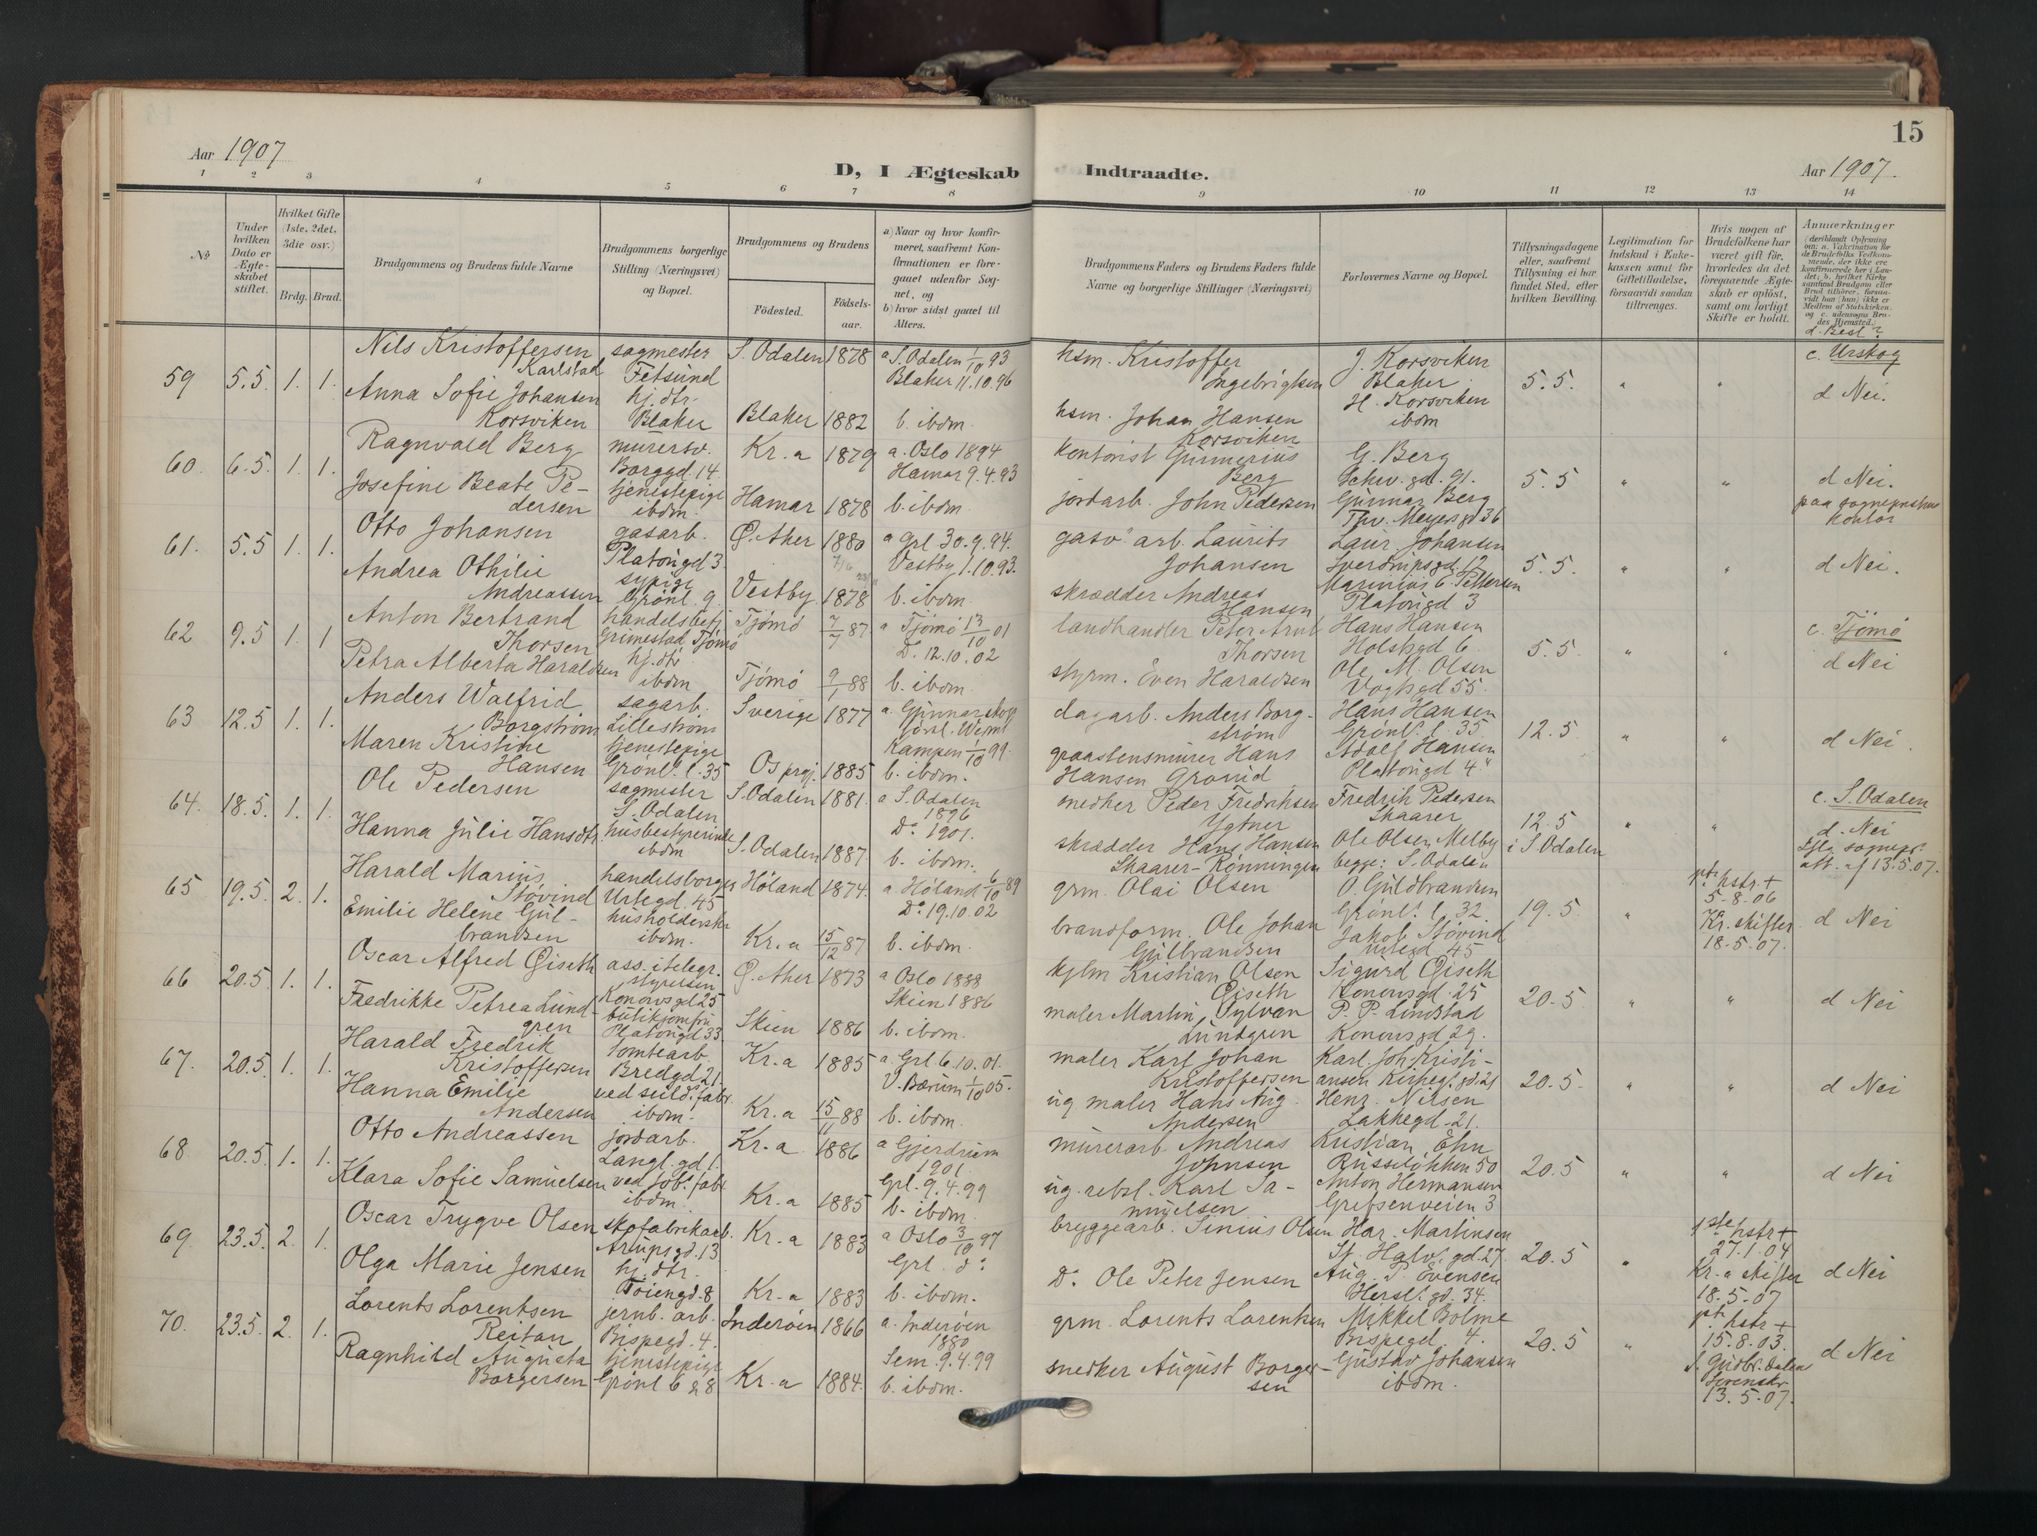 15
Aar 1907
D, I Ægteskab Indtraadte.
Aar 1907.
1 2 3 4 5 6 7 8 9 10 11 12 13 14
№
Under hvilken Dato er Ægteskabet stiftet.
Hvilket Gifte (1ste, 2det, 3die osv.)
Brdg. Brud.
Brudgommens og Brudens fulde Navne
Brudgommens borgerlige Stilling (Næringsvei) og Bopæl.
Brudgommens og Brudens
Födested. Födsels-aar.
a) Naar og hvor konfirmeret, saafremt Konfirmationen er foregaaet udenfor Sognet, og
b) hvor sidst gaaet til Alters.
Brudgommens Faders og Brudens Faders fulde Navne og borgerlige Stillinger (Næringsvei)
Forlovernes Navne og Bopæl.
Tillysningsdagene eller, saafremt Tillysning ei har fundet Sted, efter hvilken Bevilling.
Legitimation for Indskud i Enkekassen samt for Giftetilladelse, forsaavidt saadan tiltrænges.
Hvis nogen af Brudefolkene har været gift før, hvorledes da det foregaaende Ægteskab er oplöst, samt om lovligt Skifte er holdt.
Anmærkninger
d. Besl?
59 5.5. 1. 1.
Nils Kristoffersen Karlstad
sagmester Fetsund
S. Odalen 1878
a S. Odalen 1/10 93
Blaker 11.10.96
hsm. Kristoffer Ingebrigtsen
J. Korsviken Blaker
5.5. " "
c. Urskog
d Nei.
Anna Sofie Johansen Korsviken
hj. dtr. Blaker
Blaker 1882
b. ibdm.
hsm. Johan Hansen Korsviken
H. Korsviken ibdm
60. 6.5. 1. 1.
Ragnvald Berg
murersv. Borggd. 14.
Kr.a 1879
a. Oslo 1894
Hamar 9.4.93
kontorist Gunnerius Berg
G. Berg
Schw. gd. 91.
5.5 " "
d Nei.
paa sogneprestens kontor
Josefine Beate Pedersen
tjenestepige ibdm.
Hamar 1878
b. ibdm.
jordarb. John Pedersen
Gunnar Berg
Thv. Meyersgd 36
61. 5.5 1. 1.
Otto Johansen
gasarb. Platougd 3
Ø. Aker 1880
a Grl 30.9.94.
Vestby 1.10.93.
gasv. arb. Laurits Johansen
Laur. Johansen
Sverdrupsgd. 12
5.5. " "
d Nei.
Andrea Othilie Andreassen
sypige Grönl. 9
Vestby 1878
b. ibdm.
skrædder Andreas Hansen
Marinius E. Pettersen
Platougd 3
62 9.5 1. 1
Anton Bertrand Thorsen
handelsbetj Grimestad, Tjömö
Tjömö 7/7 87.
a Tjömö 13/10 01
D. 12.10.02
landhandler Peter Arnt Thorsen
Hans Hansen
Holstgd 6.
5.5. " "
c. Tjömö
d Nei
Petra Alberta Haraldsen
hj. dtr ibdm
Tjömö 9/1 88
b. ibdm.
styrm. Even Haraldsen
Ole M. Olsen
Vogtsgd 55.
63 12.5 1. 1.
Anders Walfrid Borgström
sagarb. Lilleström
Sverige 1877
a. Gunnarskog
Kampen 1/10 99.
dagarb. Anders Borgström
Hans Hansen
Grönl. l. 35
12.5. " "
d Nei.
Maren Kristine Hansen
tjenestepige Grönl. l. 35
Os prgj. 1885
b. ibdm.
graastensmurer Hans Hansen Grorud
Adolf Hansen
Platougd 4"
64. 18.5. 1. 1.
Ole Pedersen
sagmester S. Odalen
S. Odalen 1881.
a S. Odalen 1896
D. 1901.
snedker Peder Fredriksen Ygtner
Fredrik Pedersen Skaarer
12.5
i S. Odalen " "
c. S. Odalen
d. Nei
att. af 13.5.07.
Hanna Julie Hansdtr.
husbestyrerinde ibdm
S. Odalen 1887.
b. ibdm.
skrædder Hans Hansen Skaarer-Rönningen
Ole Olsen Melby
begge: S. Odalen
65 19.5 2. 1.
Harald Marius Stövind
handelsborger Urtegd. 45
Höland 1874.
a Höland 6/10 89
D. 19.10.02
grm. Olai Olsen
O. Guldbrandsen
Grönl. l. 32.
19.5 "
hstr +
5-8.06
Kr. skifter
18.5.07.
d Nei
Emilie Helene Gulbrandsen
husholderske ibdm.
Kr.a 15/12 87
b. ibdm
bransform. Ole Johan Gulbrandsen
Jakob Stövind
Urtegd 45
66 20.5. 1. 1.
Oscar Alfred Qiseth
ass. i telegr. styrelsen
Konowsgd 25
Ø. Aker 1873
a Oslo 1888
Skien 1886
kjlm Kristian Olsen Qiseth
Sigurd Qiseth
Konowsgd. 25
20.5 " "
d Nei
Fredrikke Petrea Lundgren
butikjomfru Platougd 33
Skien 1886
b. ibdm.
maler Martin Sylvan Lundgren
P. P. Lindstad
Konowsgd 29.
67. 20.5. 1. 1.
Harald Fredrik Kristoffersen
tomtearb. Bredgd 21
Kr.a 1885
a. Grl 6.10.01.
V. Bærum 1/10 05.
maler Karl Johan Kristoffersen
Karl Joh. Kristiansen Kirkegt. gd. 21
20.5. " "
d Nei
Hanna Emilie Andersen
ved seild. fabr. ibdm.
Kr.a 15/11 88
b. ibdm.
ug maler Hans Aug. Andersen
Henr. Nilsen
Lakkegd. 21.
68. 20.5. 1. 1.
Otto Andreassen
jordarb. Langl. gd 1.
Kr.a 1886
a Gjerdrum 1901.
Grl. 9.4.99
murerarb Andreas Johnsen
Kristian Ehn
Russelökken 50
20.5 " "
d Nei
Klara Sofie Samuelsen
ved Job. fabr. ibdm.
Kr.a 1885
b. ibdm.
ug. rebsl. Karl Samuelsen
Anton Hermansen
Grefsenveien 3
69. 23.5. 2. 1.
Oscar Trygve Olsen
skofabrikarb. Arupsgd. 13
Kr.a 1883
a Oslo 3/10 97
Grl. d:
bryggearb. Sinius Olsen
Har. Martinsen
St. Halv. gd. 27.
20.5 "
1ste hstr +
27.1.04
Kr.a skifter
18.5.07
d Nei
Olga Marie Jensen
hj. dtr. Töiengd. 8
Kr.a 1883
b. ibdm.
D. Ole Peter Jensen
Aug. P. Evensen
Hersl. gd. 34.
70. 23.5. 2. 1.
Lorents Lorentsen Reitan
jernb. arb. Bispegd. 4.
Inderöen 1866
a. Inderöen 1880
Sem. 9.4.99
grm. Lorents Lorentsen
Mikkel Bolme
Bispegd. 4.
20.5 "
hstr +
15.8.03.
S. Gudbr. dalen
Sorenskr.
13.5.07.
d Nei
Ragnhild Augusta Borgersen
tjenestepige Grönl 6 & 8
Kr.a 1884.
b. ibdm.
snedker August Borgersen
Gustav Johansen
ibdm.